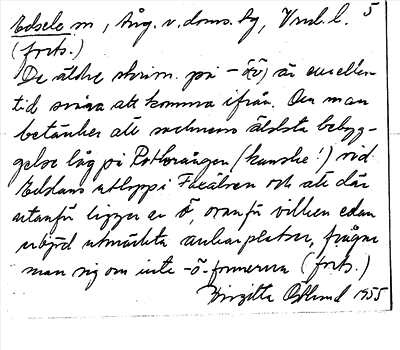 Edsele sn, Ång. v. doms. hg, Vnrl. l. 5
(forts.)
De äldre skrivn. på -ö(ö) är emellertid
svåra att komma ifrån. Om man
betänker att socknens äldsta bebyggelse
låg på Rotberången (kanske!) vid
Edslans utlopp i Faxälven och att där
utanför ligger en ö, ovanför vilken edan
erbjöd utmärkta ankarplatser, frågar
man sig om inte -ö-formerna (forts.)
Birgitta Östlund 1955